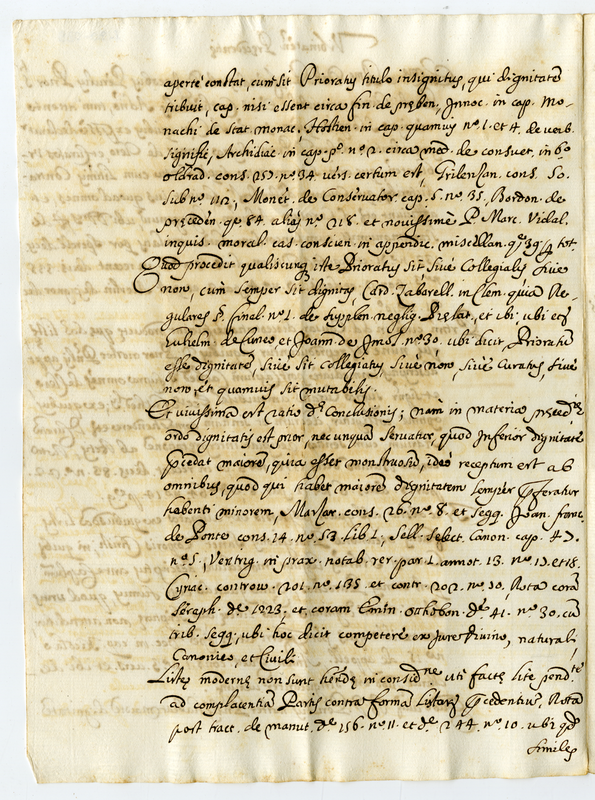 apertè constat, cum sit Prioratus titulo insignitus, qui dignitatē
tribuit, cap. nisi essent circa fin. de preben. Innoc. in cap. Mo-
nachi de stat. monac. Hostien. in cap. quamvis n.º 1. et 4. de verb.
signific. Archidiac. in cap. p.º n.º 2. circa med. de consuet. in 6.º
oldrad. cons. 257. n.º 34. vers. certum est, cons. 50.
sub n.º 112, Monet. de Conservator. cap. 5. n.º 35, Bordon. de
preceden. 84. n.º 218. et novissimè P. Marc. Vidal.
inquis. moral. cas. conscien. in appendic. miscellan. 39.
Quod procedit qualiscunq iste Prioratus sit, sive Collegialis sive
non, cum semper sit dignitas, Card. Zabarell. in Clem. quia Re-
gulares §. final. n.º 1. de supplen. neglig. Prelat. et ibi
Gulielm. de Cuneo et Joann. de Imol. n.º 30. ubi dicit Prioratū
esse dignitatē, sive sit collegiatus, sive non, sive curatus, sive
non, et quamvis sit mutabilis.
Et vivissima est ratio d.ᵉ Conclusionis; nam in materia
ordo dignitatis est prior, nec unquā servatur, quod Inferior dignitate
precedat maiorē, quia esset monstruosū, ideo receptum est ab
omnibus, quod qui habet maiorē dignitatem semper preferatur
habenti minorem, cons. 26. n.º 8. et seqq. Joan. franc.
de Ponte cons. 14. n.º 53. lib. 1, Sell. select. Canon. cap. 47.
n.º 5. Ventrig. in prax. notab. rer. par. 1. annot. 13. n.º 17. et 18.
Cyriac. controv. 201. n.º 135. et contr. 202. n.º 30, Rota corā
Seraph. 1223. et coram Emin. Otthobon. 41. n.º 30. cū
trib. seqq. ubi hoc dicit competere ex Jure Divino, naturali,
Canonico et Civili
moderne non sunt in consid.ⁿᵉ uti facte lite pend.ᵗᵉ
ad complacentiā Partis contra formā precedentiū, Rota
post tract. de manut. 156. n.º 11. et 244. n.º 10. ubi
similes